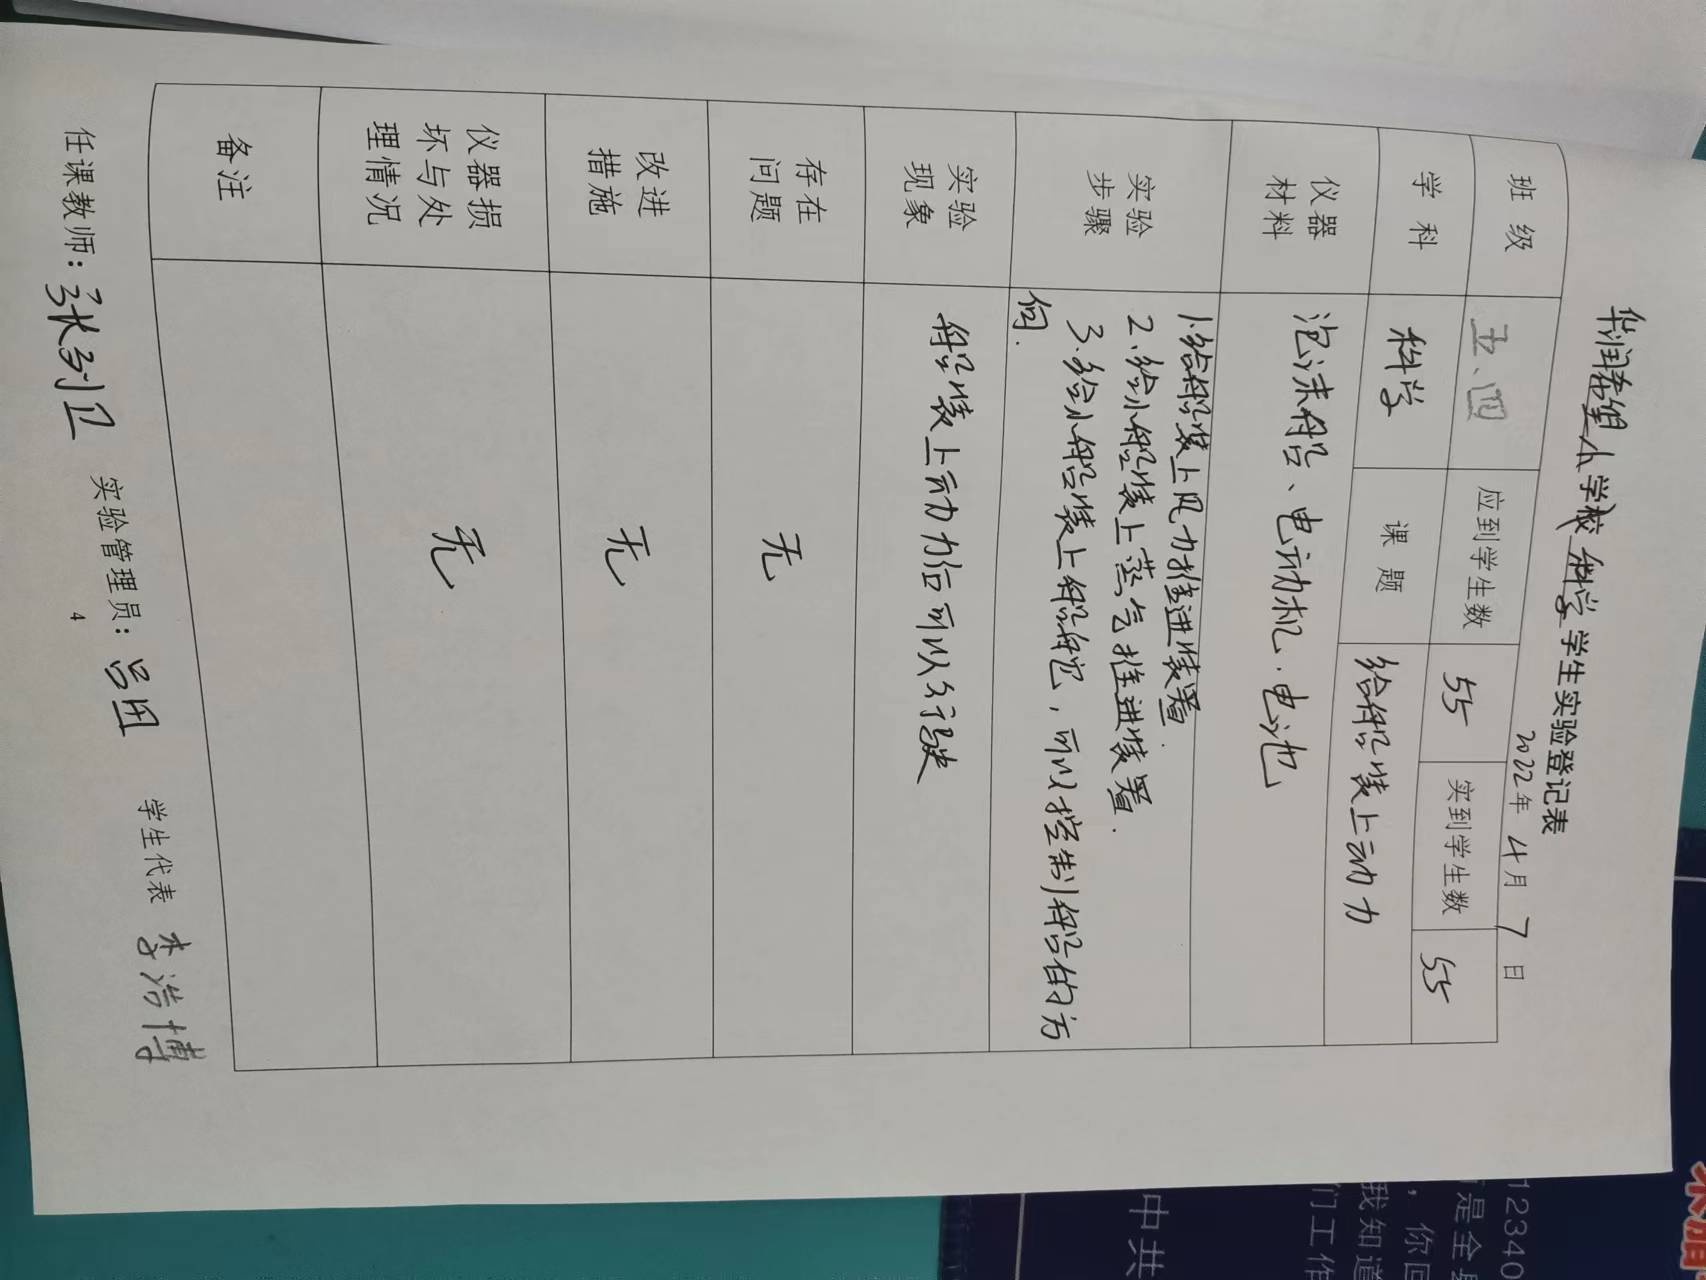 华润希望小学校 科学 学生实验登记表
2022年 4月 7日
班级 五、四 应到学生数 55 实到学生数 55
学科 科学 课题 给船装上动力
仪器
材料
泡沫船、电动机、电池
实验
步骤
1.给船装上风力推进装置.
2.给小船装上蒸气推进装置.
3.给小船装上船舵，可以控制船的方
向.
实验
现象
船装上动力后可以行驶
存在
问题
无
改进
措施
无
仪器损
坏与处
理情况
无
备注
任课教师：张 卫 实验管理员：吕团 学生代表 李浩博
4
12340
是全
，你回
我知道
们工作
中共